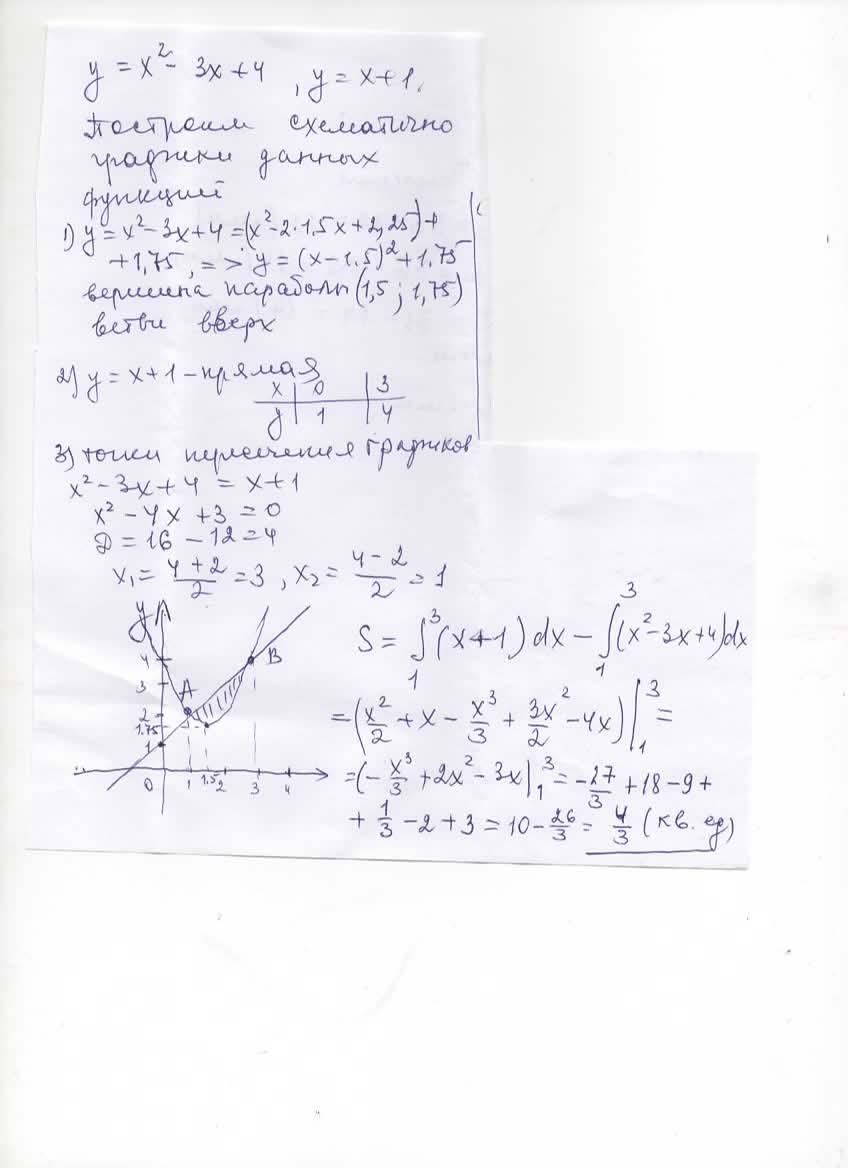 y = x² - 3x + 4 , y = x + 1.
Построим схематично
графики данных
функций
1) y = x² - 3x + 4 = (x² - 2·1,5x + 2,25) +
+ 1,75, => y = (x - 1.5)² + 1.75
вершина параболы (1,5 ; 1,75)
ветви вверх
2) y = x + 1 - прямая
x | 0 | 3
y | 1 | 4
3) точки пересечения графиков
x² - 3x + 4 = x + 1
x² - 4x + 3 = 0
D = 16 - 12 = 4
x₁ = (4+2)/2 = 3 , x₂ = (4-2)/2 = 1
y
4
3
2
1.75
1
A
B
0 1 1.5 2 3 4
S = ∫₁³ (x+1) dx - ∫₁³ (x² - 3x + 4) dx
= (x²/2 + x - x³/3 + 3x²/2 - 4x) |₁³ =
= (- x³/3 + 2x² - 3x |₁³ = - 27/3 + 18 - 9 +
+ 1/3 - 2 + 3 = 10 - 26/3 = 4/3 (кв. ед)